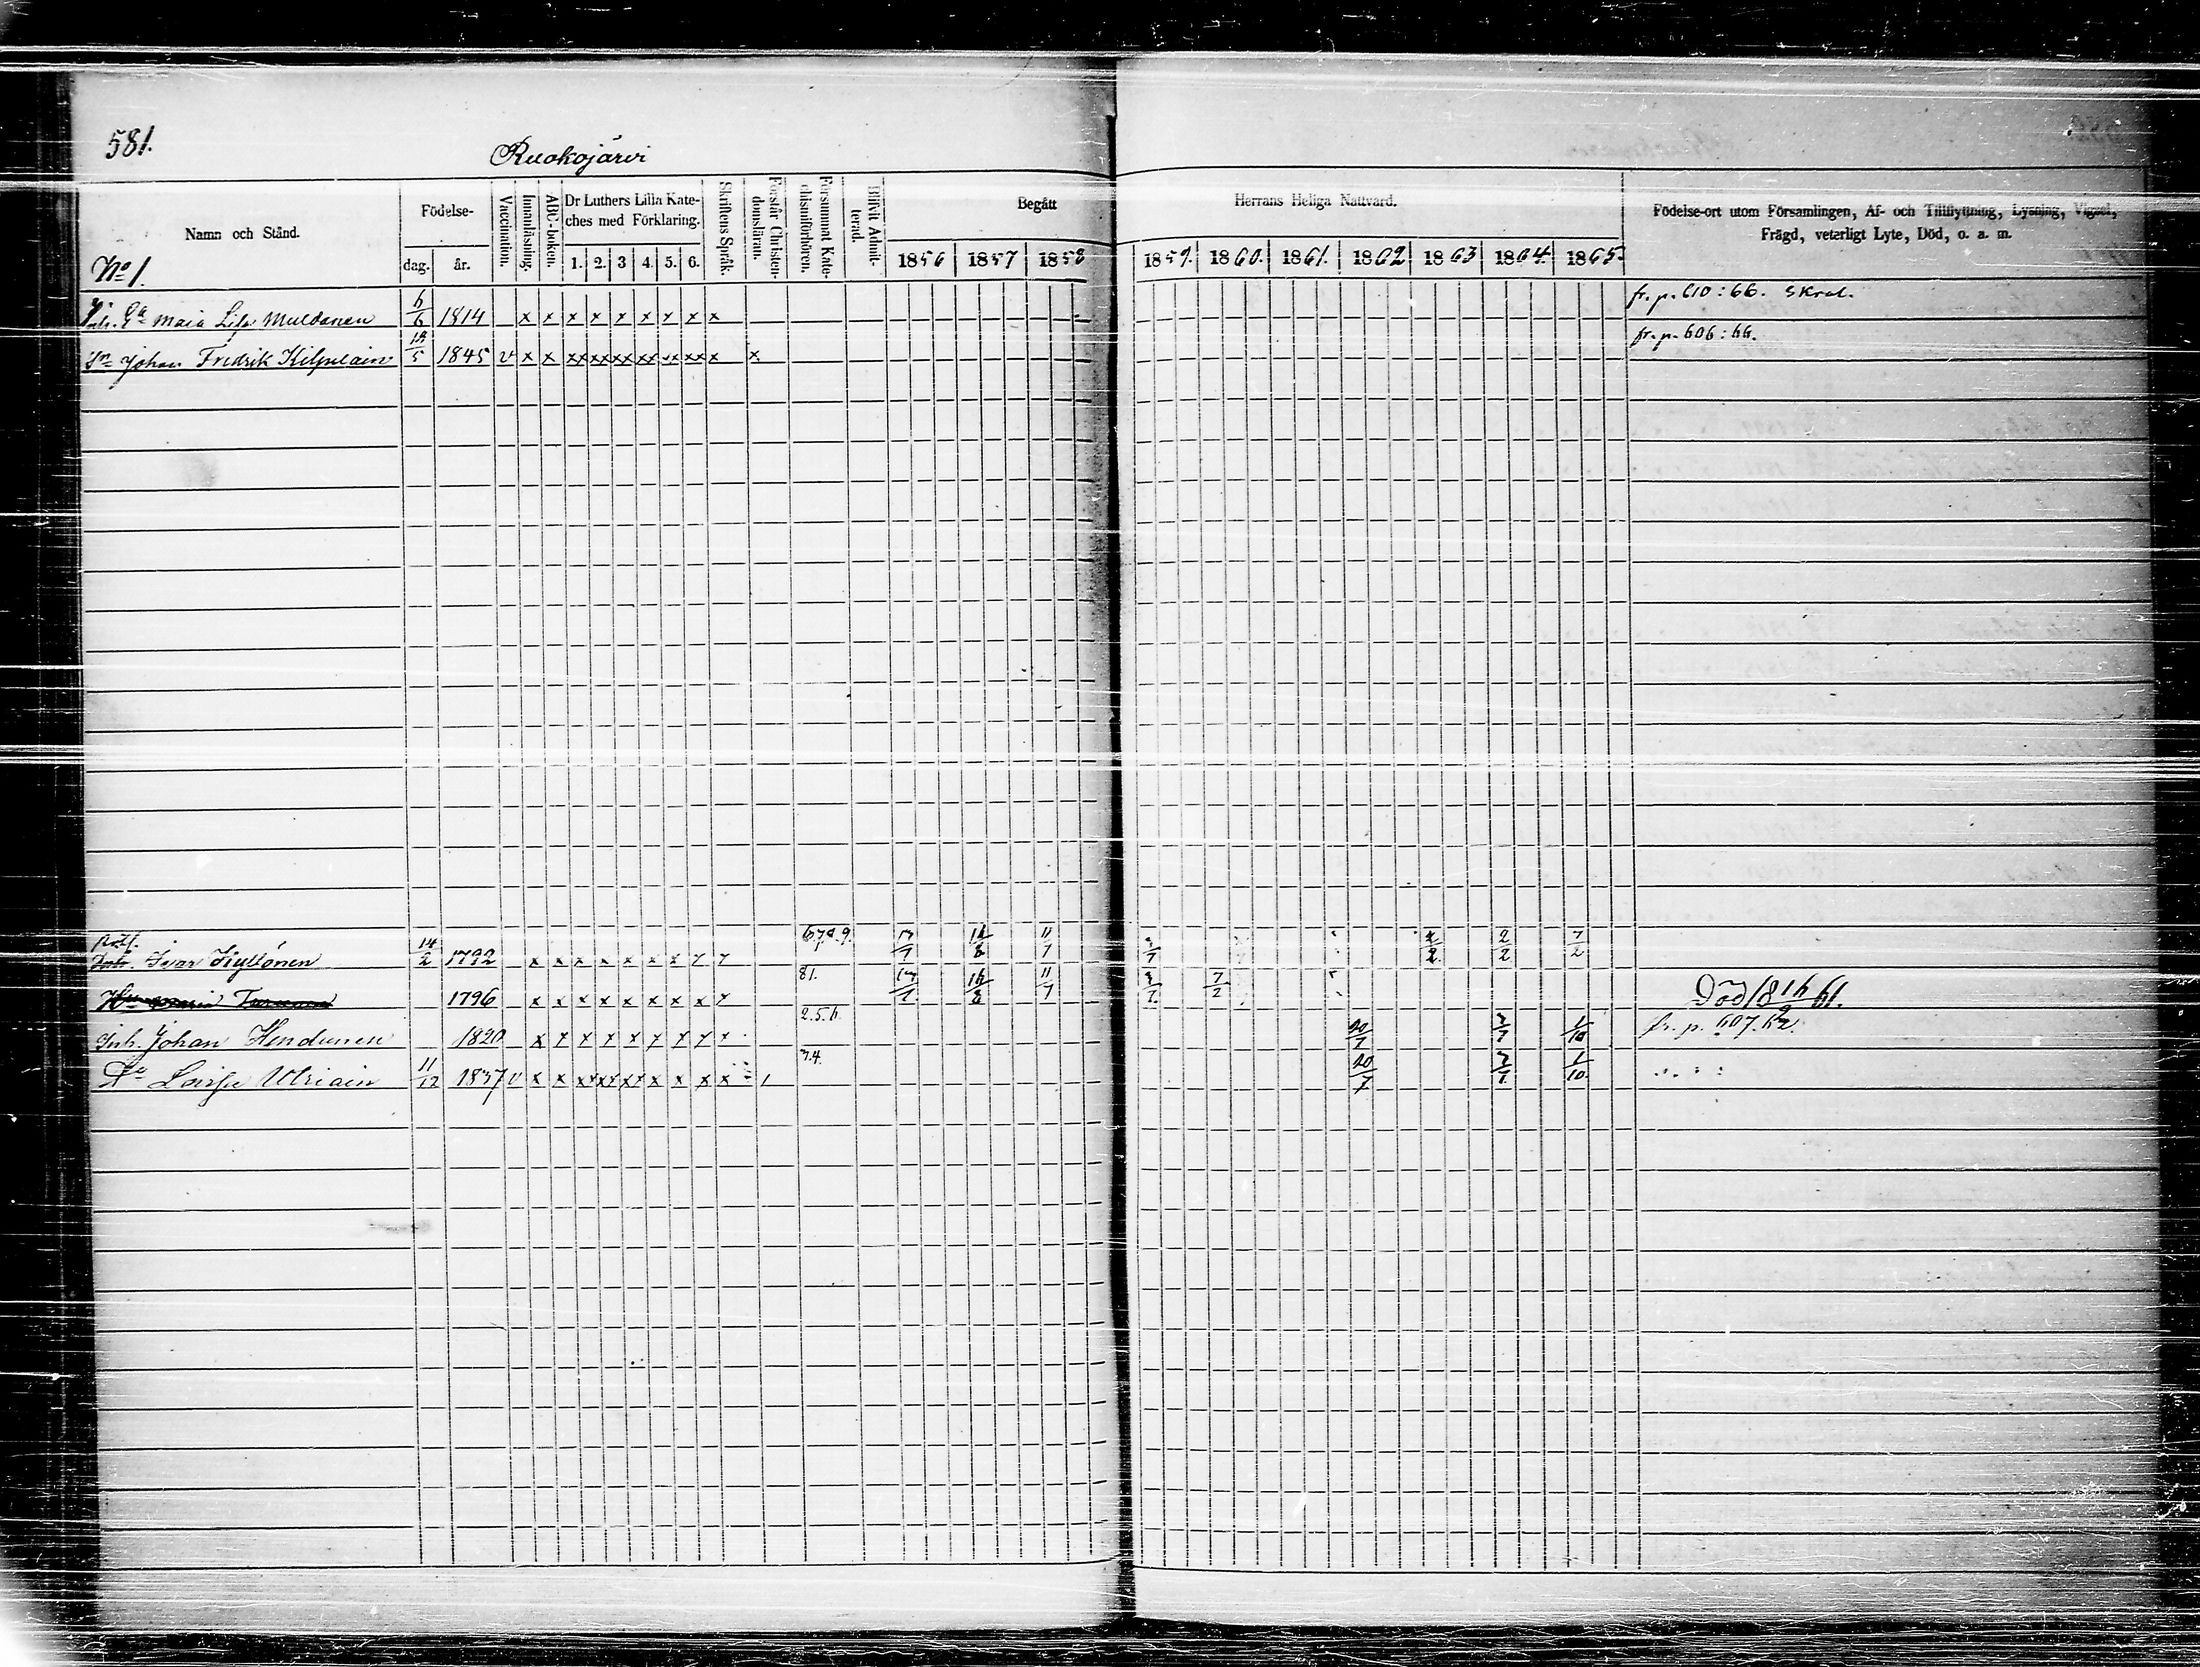 581.
Ruokojärvi
Namn och Stånd.
No 1.
Födelse-
dag. år.
Vaccination.
Innanläsning.
ABC-boken.
Dr Luthers Lilla Kate-
ches med Förklaring.
1. 2. 3 4. 5. 6.
Skriftens Språk.
Förstår Christen-
domsläran.
Försummat Kate-
chismiförhören.
Blifvit Admit-
terad.
Begått Herrans Heliga Nattvard.
1856 1857 1858 1859. 1860. 1861. 1862 1863 1864. 1865.
Födelse-ort utom Församlingen, Af- och Tillflyttning, Lysning, Vigsel,
Frägd, veterligt Lyte, Död, o. a. m.
Inh. Ea Maia Lisa Muldonen 6/6 1814 x x x x x x x x x fr. p. 610: 66.
Sn Johan Fredrik Kilpulain 12/5 1845 v x x xx xx xx xx xx xx x x fr. p. 606: 66.
Ivar 14/2 1792 x x x x x x x x x 6.7.8.9. 11/7 2/2 7/2
1796 x x x x x x x x x 81. 11/7 7/2 Död 18 16/2 61.
Inh. Johan Hendunen 1820 x x x x x x x x x 2.5.6. 20/7 1/10 fr. p. 607. 62.
Da Lovisa Ulriain 11/12 1837 v x x xx xx xx x x x x 1 3.4. 20/7 1/10